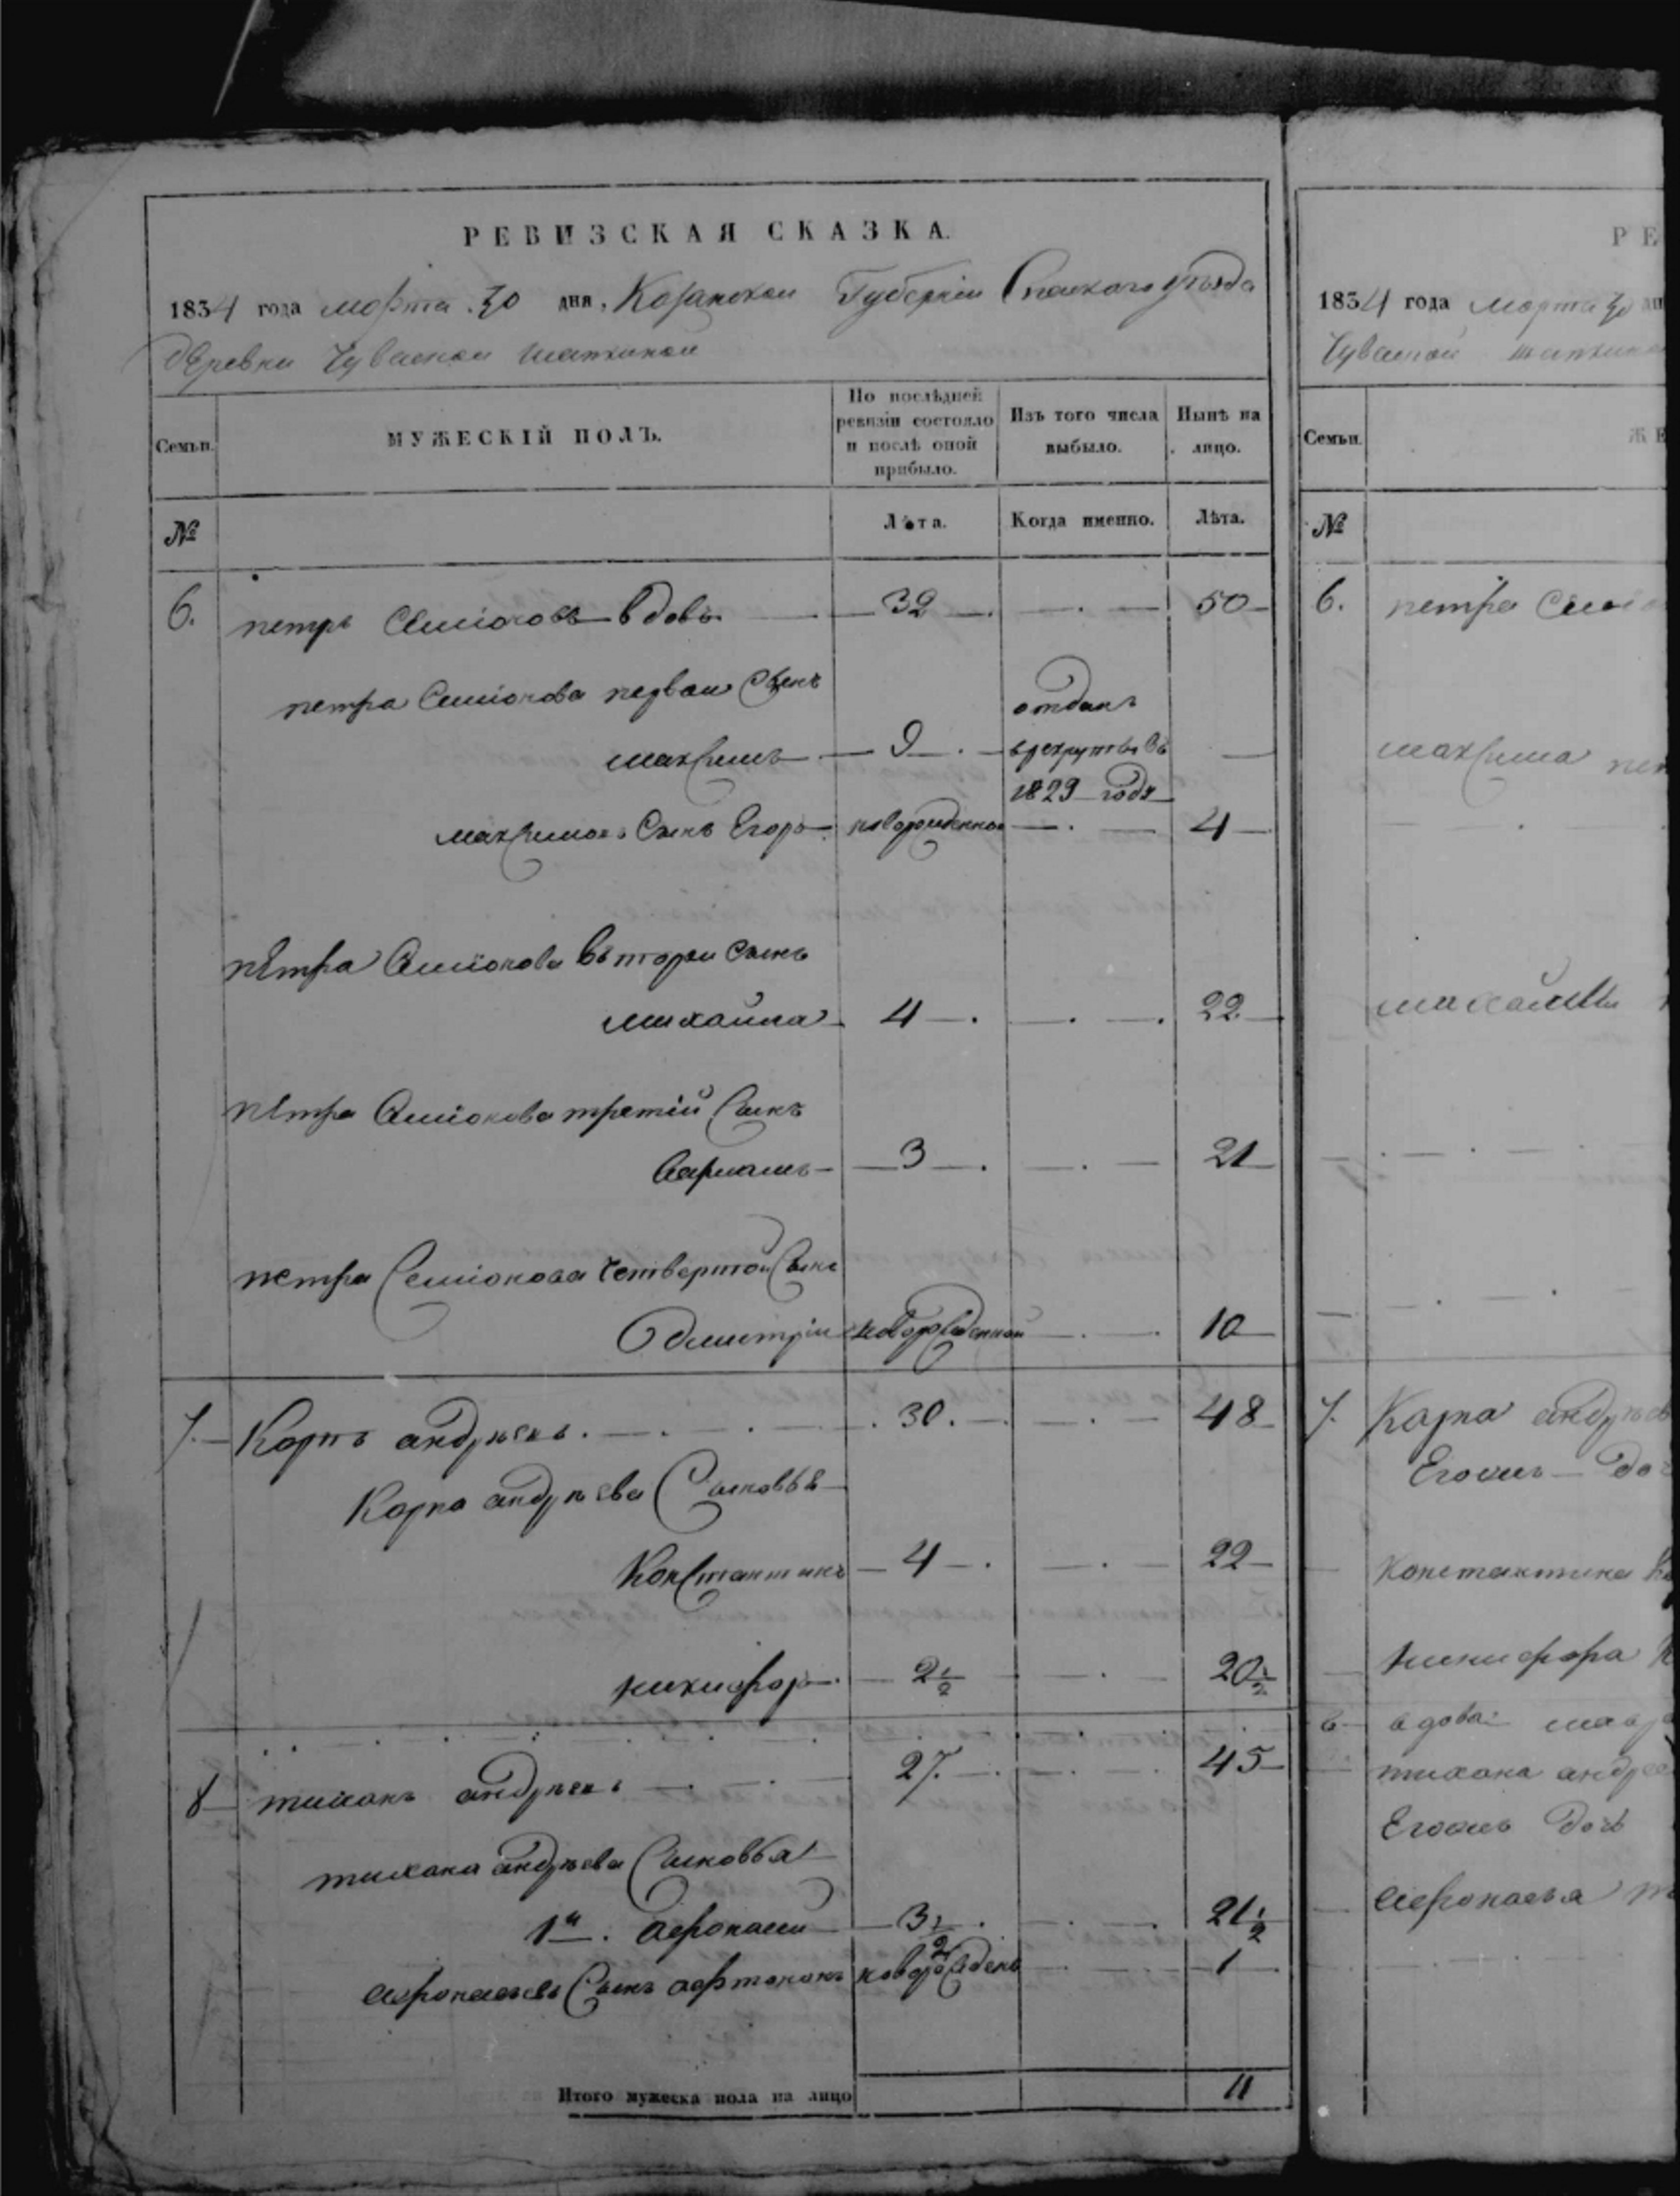 РЕВИЗСКАЯ СКАЗКА.
1834 года марта 30 дня, Казанской Губернiи Спаскаго уѣзда
деревни Чуваской
Семьи.
МУЖЕСКIЙ ПОЛЪ.
По послѣдней ревизiи состояло и послѣ оной прибыло.
Изъ того числа выбыло.
Нынѣ на лицо.
№
Лѣта.
Когда именно.
Лѣта.
6. петръ Семiоновъ вдовъ 32 50
петра Семiонова первои Сынъ
максимъ 9 отданъ врекрутывъ 1829 году
максимовъ Сынъ Егоръ новорожденнои 4
петра Семiонова вьторои сынъ
михаила 4 22
петра Семiонова третiй Сынъ
3 21
петра Семiонова четвертои Сынъ
дмитрiи новорожденнои 10
7. Карпъ андрѣевъ 30 48
Карпа андрѣева Сыновья
Константинъ 4 22
никифоръ 2 1/2 20 1/2
8 тиханъ андрѣевъ 27 45
тихана андрѣева Сыновья
1й афонасеи 3 1/2 21 1/2
афонасьевъ Сынъ афтономъ новорожденъ 1
Итого мужеска пола на лицо 11
РЕ
1834 года марта 30 дн
Чуваской
Семьи.
ЖЕ
№
6. петра
максима
михаилы
7. Карпа андрѣев
Егоже до
Константина
никифора
8 вдова
тихана андрее
Егоже доч
афонасья